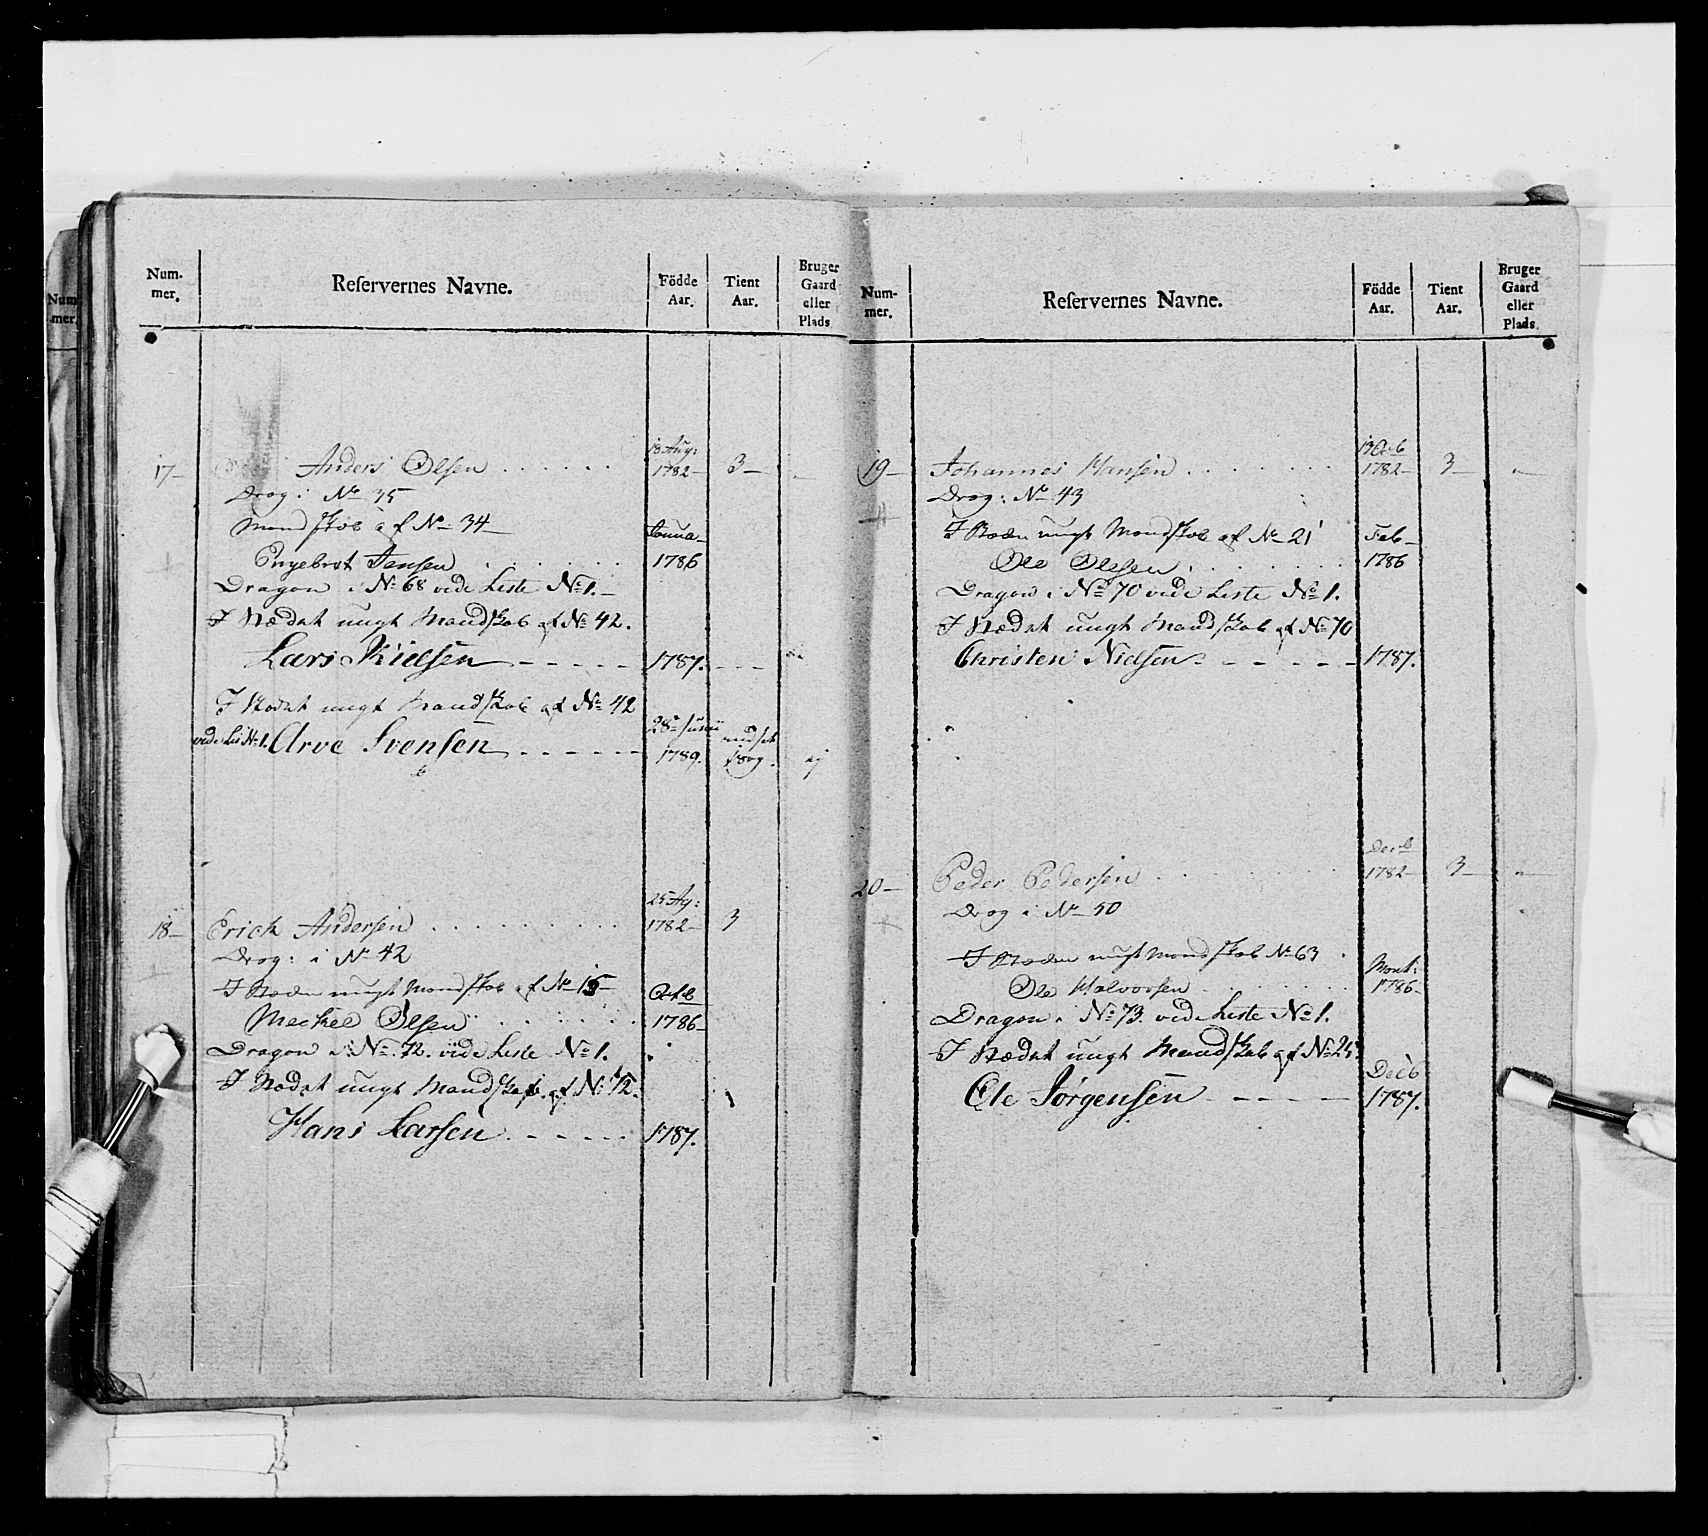 Num-
mer.
Reservernes Navne.
Födde
Aar.
Tient
Aar.
Bruger
Gaard
eller
Plads
17 -
Anders Olsen
18 Aug:
1782 -
3 -
Drag: i No 35
Mandskab af No 34
Ingebret Jensen
Janua-
1786
Dragon i No 68 vide Liste No 1. -
I Stædet ungt Mandskab af No 42.
Lars Nielsen
1787.
I Stædet ungt Mandskab af No 42
vide Lis No 1. Arve Svensen
28de Junii
1789.
udsat
1809.
ej
18 -
Erich Andersen
25 Ag:
1782 -
3
Drag: i No 42
I Stæden ungt Mandskab af No 15
Meckel Olsen
Octb
1786 -
Dragon i No. 72. vide Liste No 1.
I Stædet ungt Mandskab. af No 72.
Hans Larsen
1787.
Num-
mer.
Reservernes Navne.
Födde
Aar.
Tient
Aar.
Bruger
Gaard
eller
Plads
19 -
Johannes Hansen
13 Octb
1782 -
3 -
Drag: No 43
I Stæden ungt Mandskab af No 21
Ole Olesen
Feb -
1786
Dragon i No 70 vide Liste No 1.
I Stædet ungt Mandskab af No 70
Christen Nielsen
1787.
20 -
Peder Pedersen
Decb
1782 -
3 -
Drag i No 50
I Stæden ungt Mandskab No 63
Ole Halvorsen
1786 -
Dragon i No 73. vide Liste No 1.
I Stædet ungt Mandskab af No 25.
Ole Jørgensen
Decb
1787.